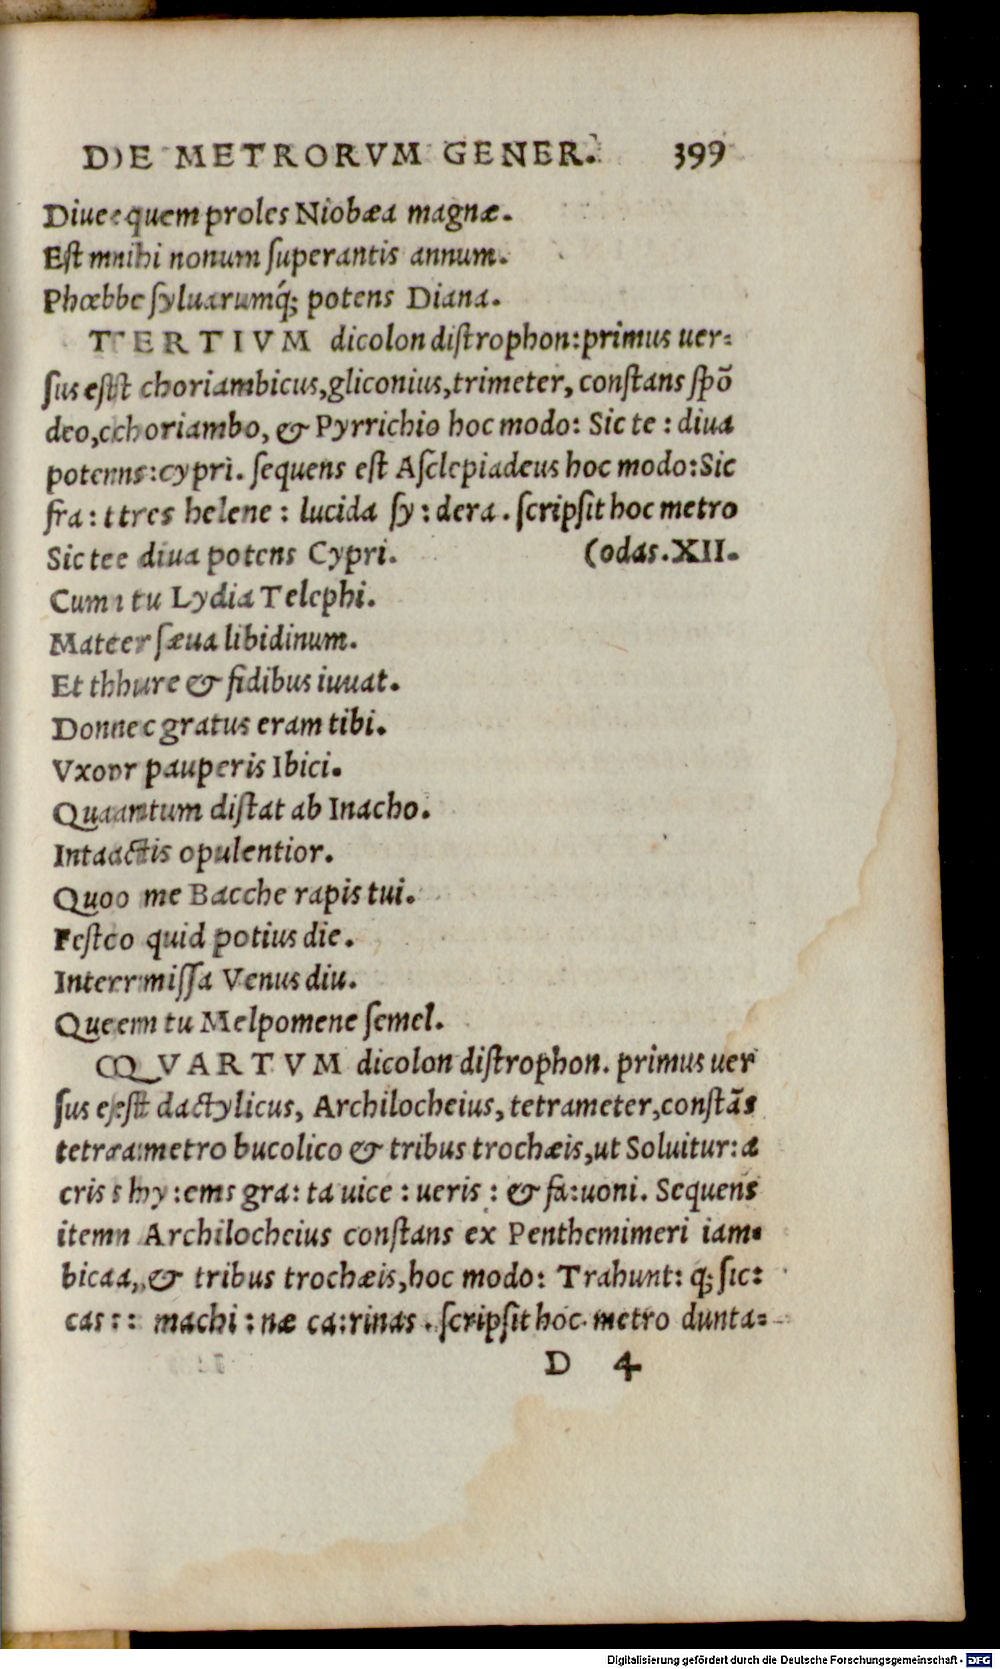 DE METRORVM GENER. 399
Diue quem proles Niobæa magnæ.
Est mihi nonum superantis annum.
Phœbe syluarumq́; potens Diana.
TERTIVM dicolon distrophon: primus uer-
sus est choriambicus, gliconius, trimeter, constans spõ
deo, choriambo, & Pyrrichio hoc modo: Sic te : diua
potens: cypri. sequens est Asclepiadeus hoc modo: Sic
fra : tres helene : lucida sy : dera. scripsit hoc metro
Sic te diua potens Cypri. (odas. XII.
Cum tu Lydia Telephi.
Mater sæua libidinum.
Et thure & fidibus iuuat.
Donec gratus eram tibi.
Vxor pauperis Ibici.
Quantum distat ab Inacho.
Intactis opulentior.
Quo me Bacche rapis tui.
Festo quid potius die.
Intermissa Venus diu.
Quem tu Melpomene semel.
QVARTVM dicolon distrophon. primus uer
sus est dactylicus, Archilocheius, tetrameter, constãs
tetrametro bucolico & tribus trochæis, ut Soluitur: a
cris hy : ems gra : ta uice : ueris : & fa : uoni. Sequens
item Archilocheius constans ex Penthemimeri iam-
bica, & tribus trochæis, hoc modo: Trahunt: q; sic:
cas : machi : næ ca : rinas. scripsit hoc metro dunta-
D 4
Digitalisierung gefördert durch die Deutsche Forschungsgemeinschaft - DFG